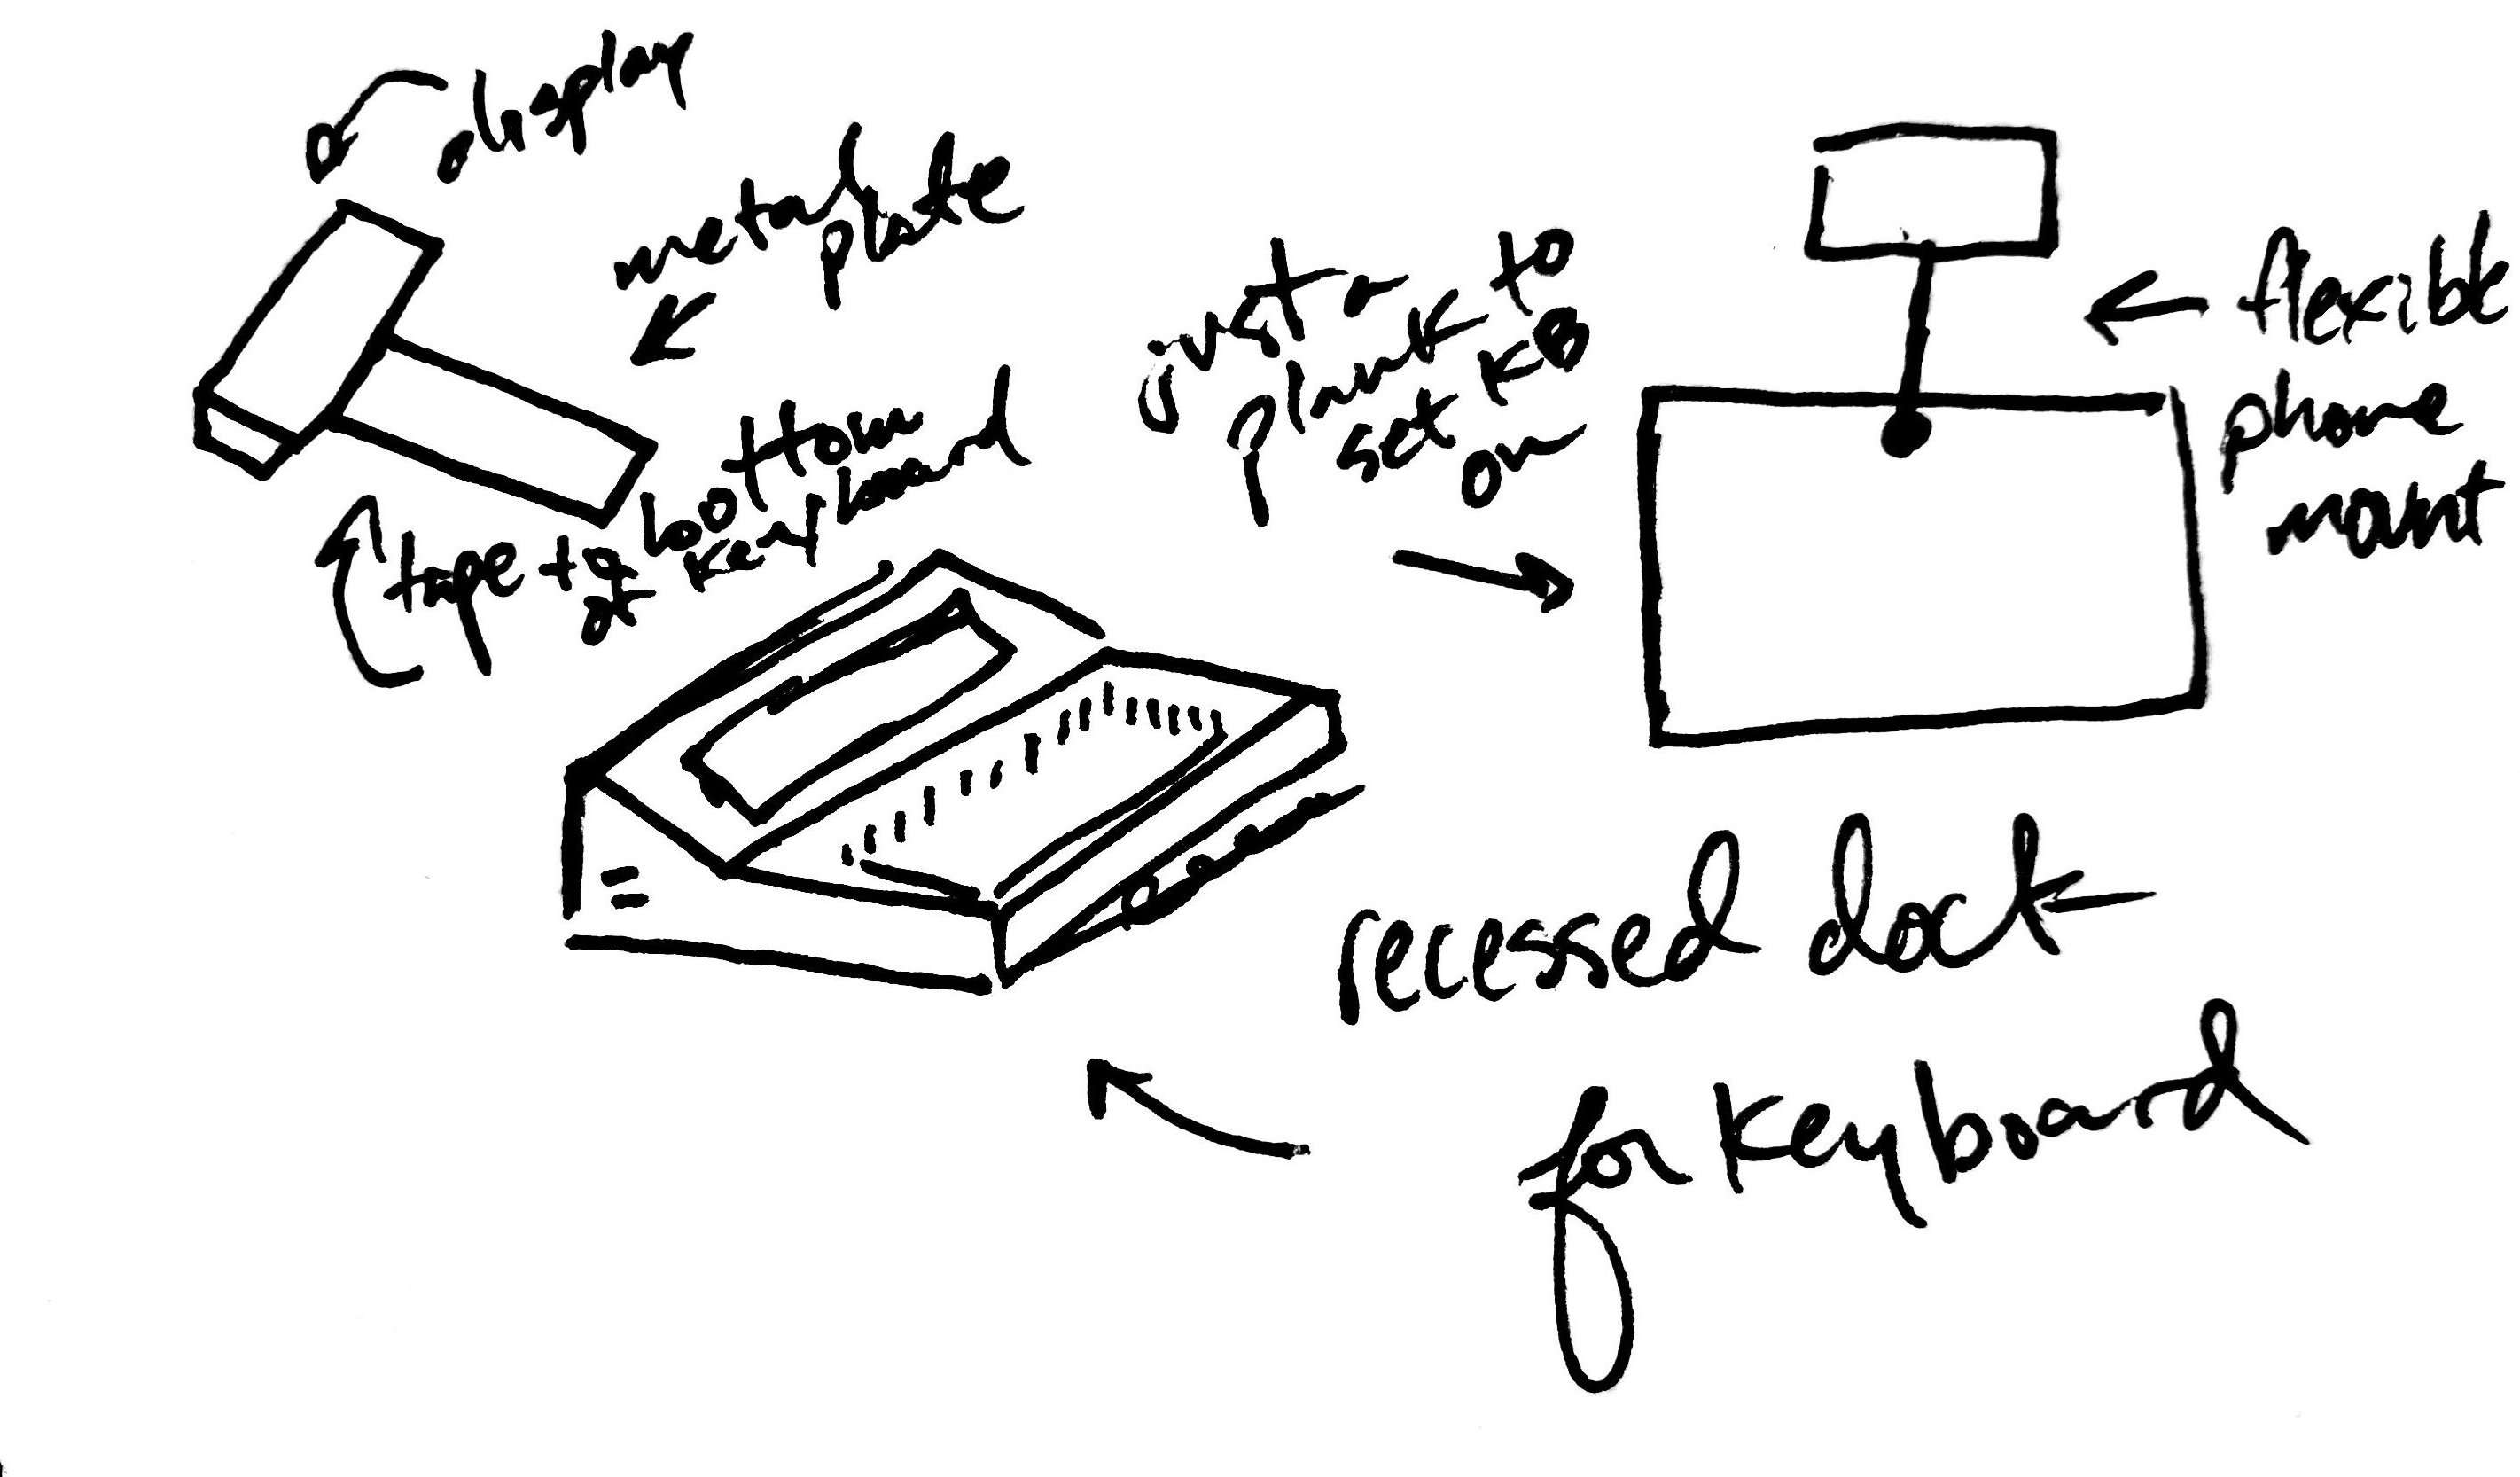 display
metal
plate
tape to bottom
of keyboard
just a
plank to
set KB
on
flexible
phone
mount
recessed dock
for keyboard